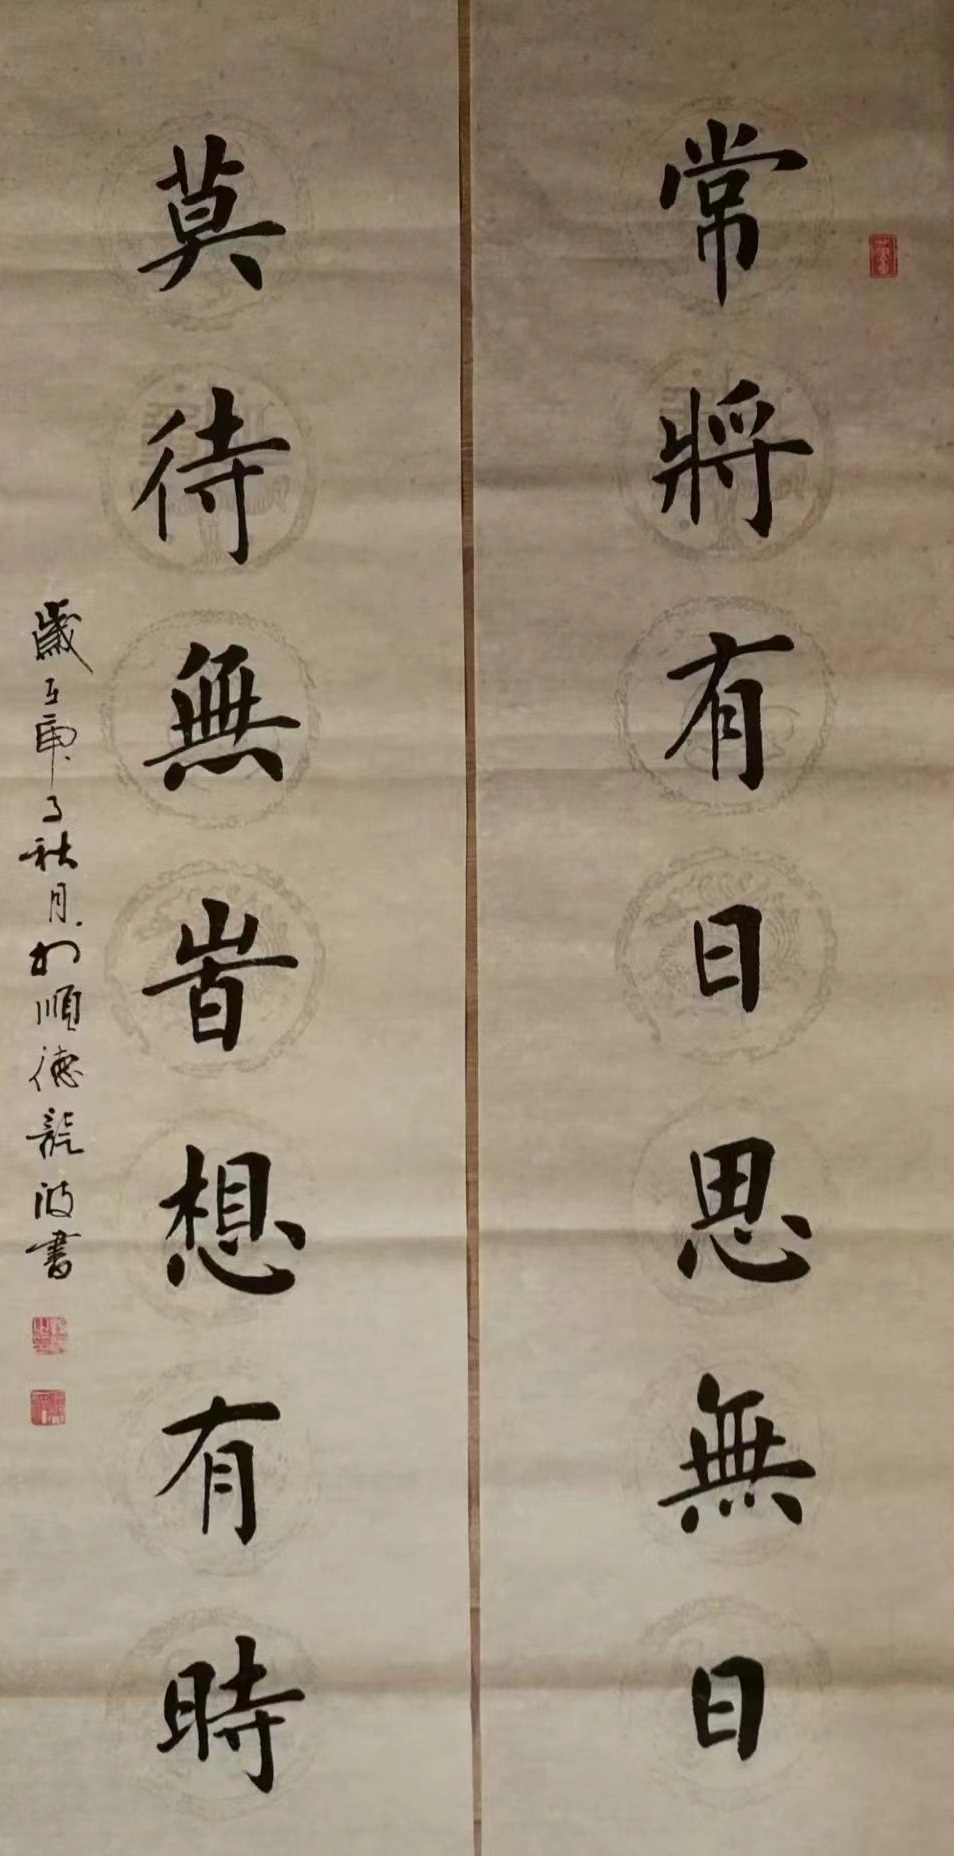 常將有日思無日
莫待無旹想有時
歲在庚子秋月於順德龍波書